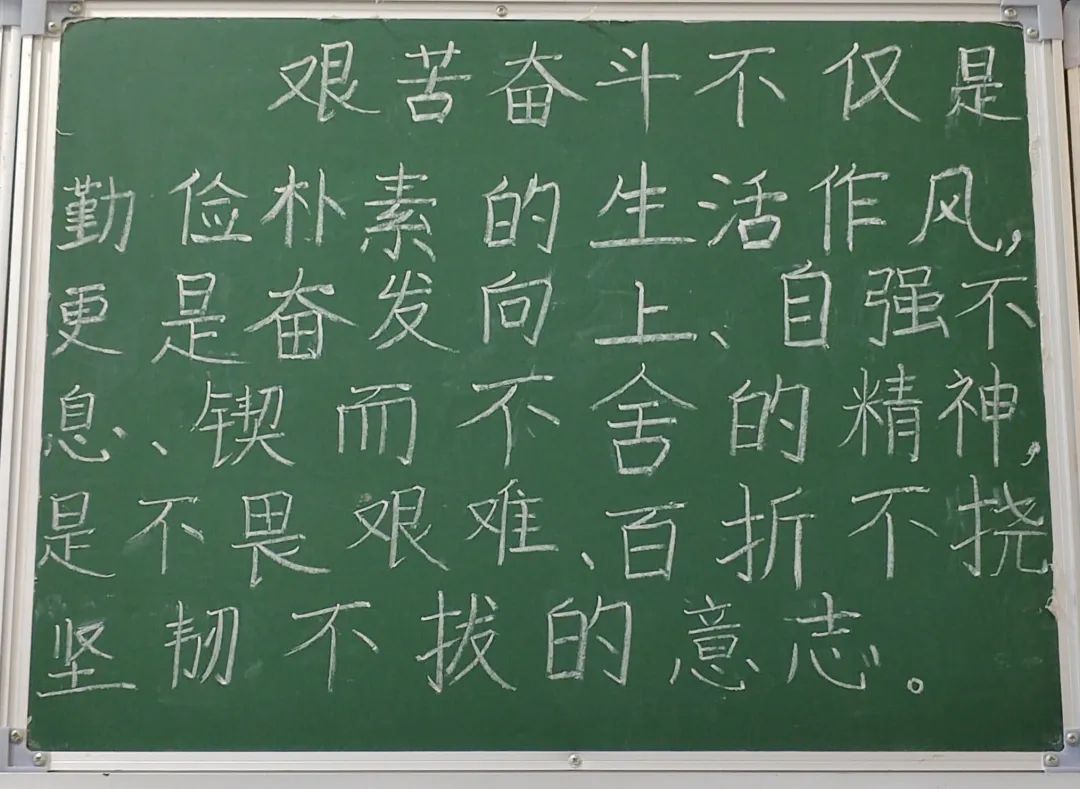 艰苦奋斗不仅是
勤俭朴素的生活作风,
更是奋发向上、自强不
息、锲而不舍的精神,
是不畏艰难、百折不挠
坚韧不拔的意志。